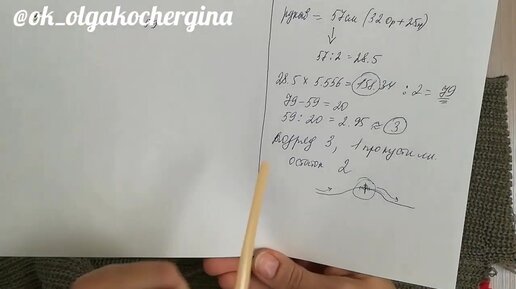 @ok_olgakochergina
рукав = 57см (32ор+25у)
57:2 = 28.5
28.5 x 5.556 = 158.34 : 2 = 79
79-59 = 20
59:20 = 2.95 ≈ 3
подряд 3, 1 пропустили.
остаток 2